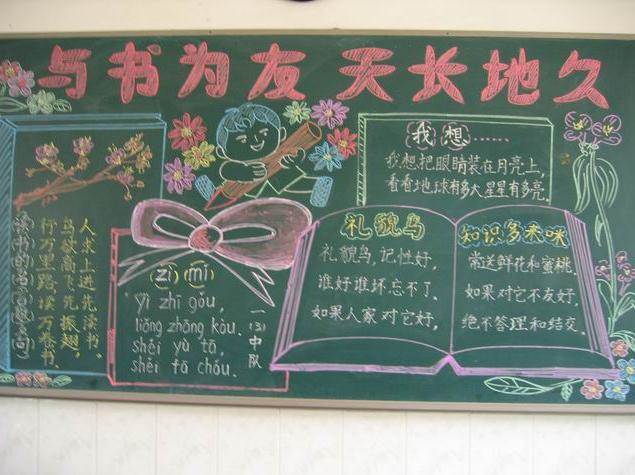 与书为友 天长地久
人求上进先读书。
鸟欲高飞先振翅，
行万里路，读万卷书。
(读书的名言警句)
(zì)(mí)
Yì zhī gǒu,
liǎng zhāng kǒu.
shéi yù tā,
shéi fā chóu.
一(3)中队
我想……
我想把眼睛装在月亮上,
看看地球有多大星星有多亮.
礼貌鸟
礼貌鸟,记性好,
谁好谁坏忘不了,
如果人家对它好,
知识多来咪
常送鲜花和蜜桃.
如果对它不友好,
绝不答理和结交.